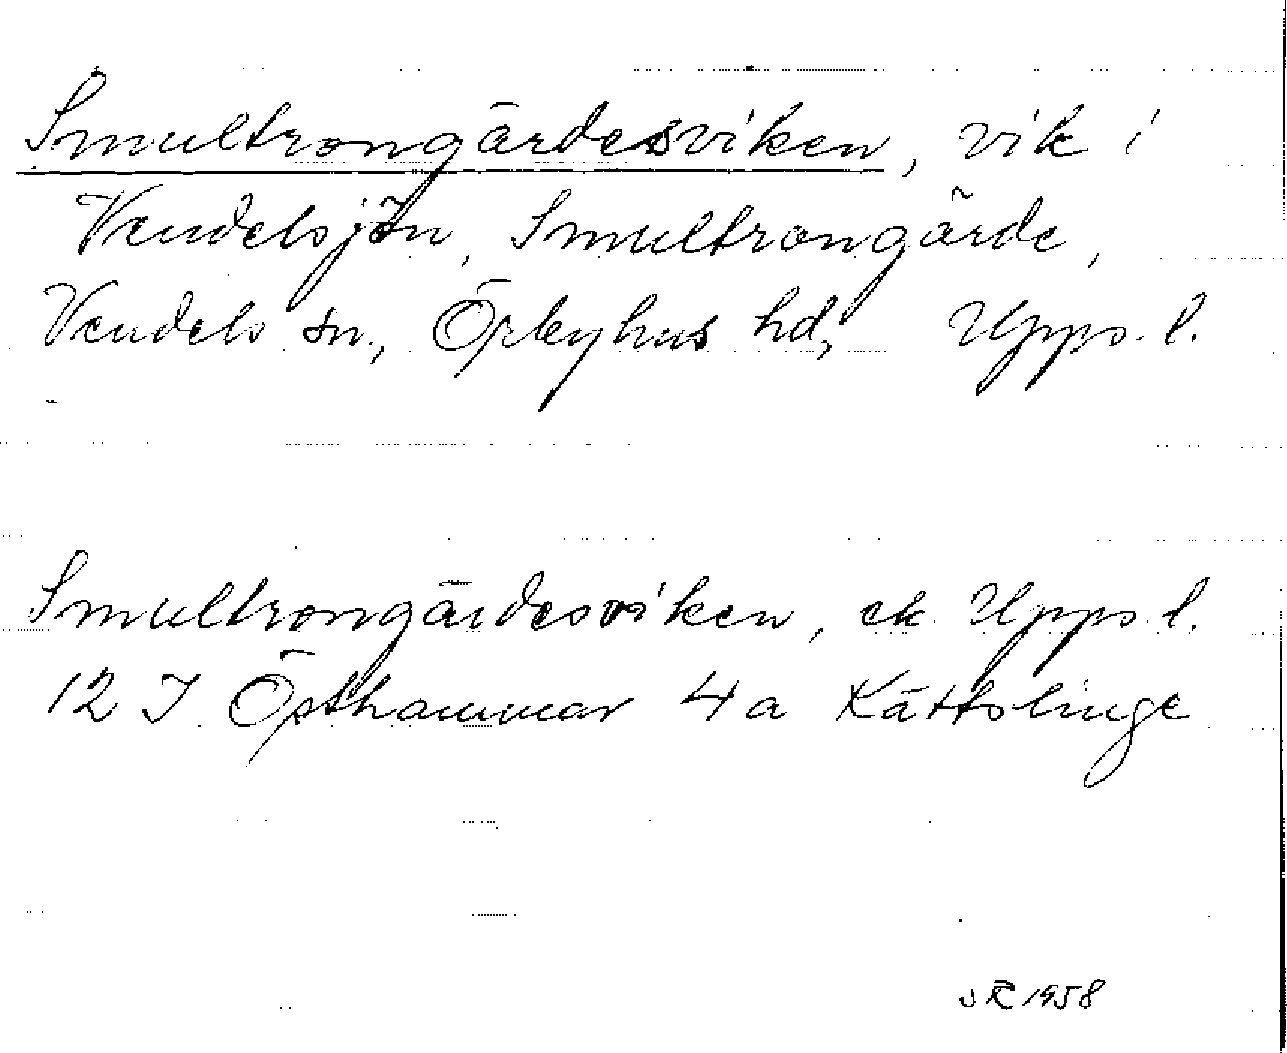 Smultrongärdesviken, vik i
Vendelsjön, Smultrongärde,
Vendels sn., Örbyhus hd, Upps. l.
Smultrongärdesviken, ek. Upps l.
12 I Östhammar 4 a Kättslinge
1958